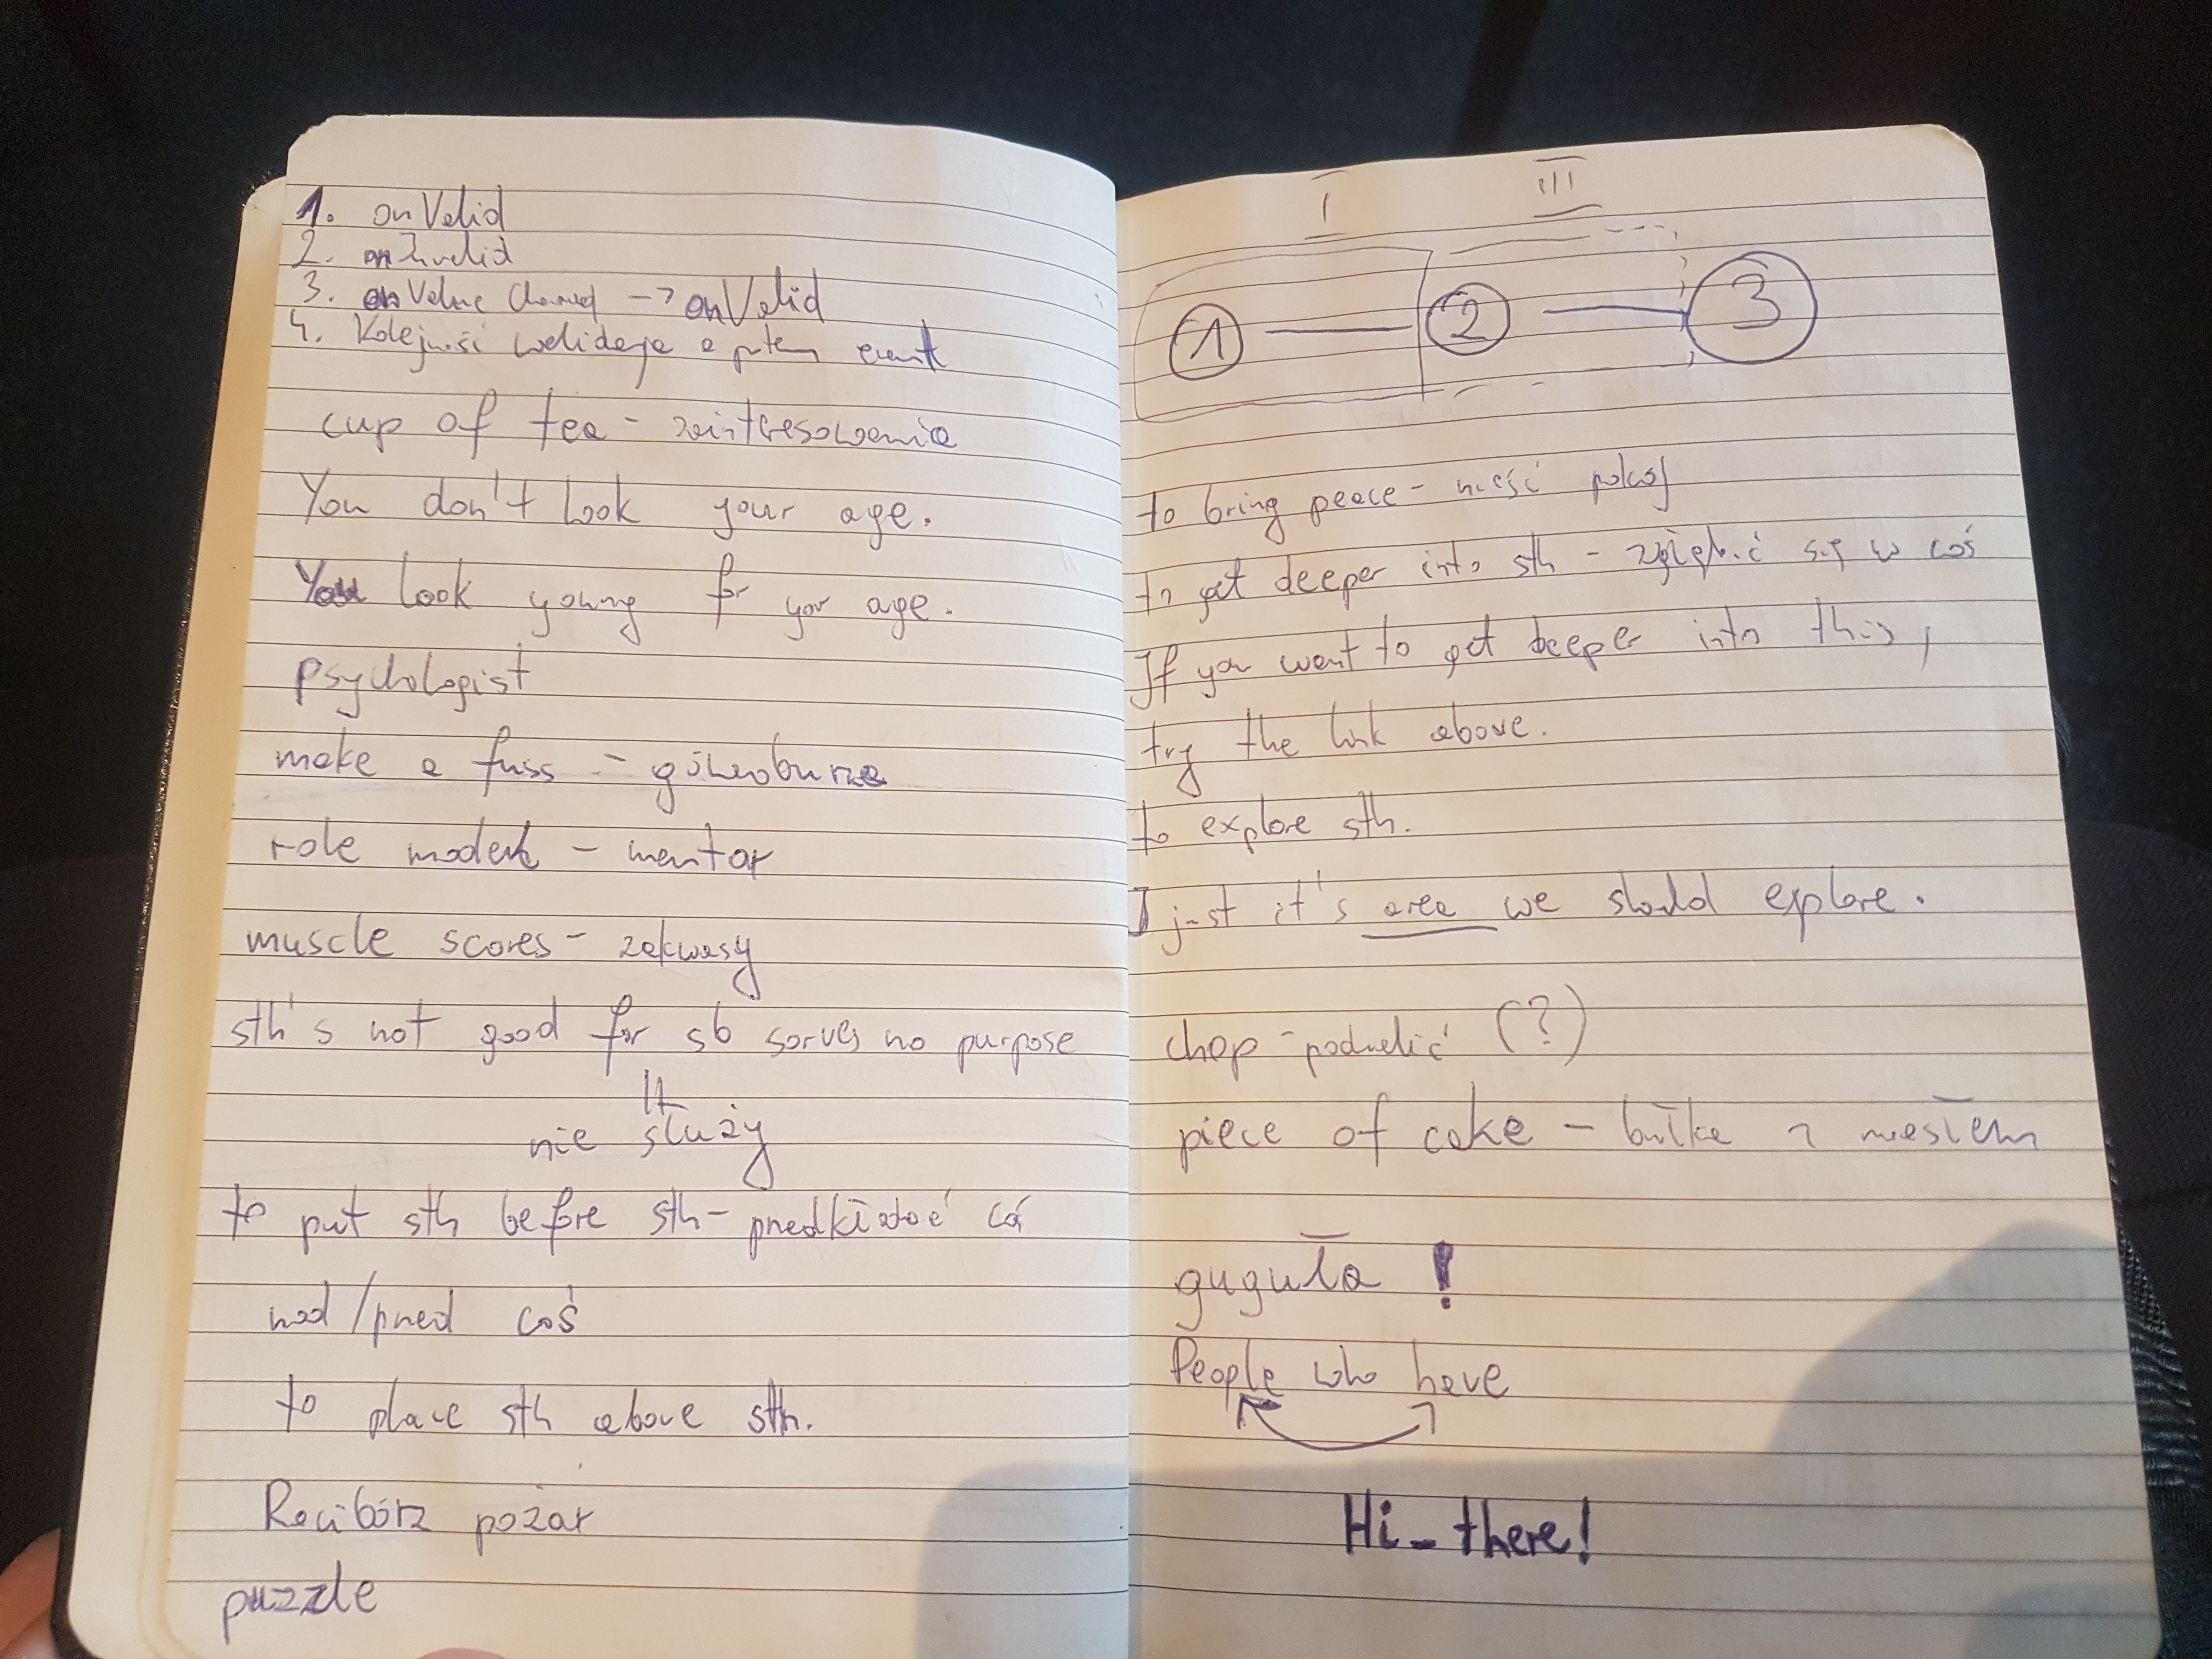 1. onValid
2. onInvalid
3. onValue Changed -> onValid
4. Kolejność walidacja a potem event
cup of tea - zainteresowania
You don't look your age.
You look young for your age.
Psychologist
make a fuss - gównoburza
role model - mentor
muscle scores - zakwasy
sth's not good for sb serves no purpose
nie służy
to put sth before sth - przedkładać coś
nad/przed coś
to place sth above sth.
Racibórz pożar
puzzle
1 2 3
to bring peace - nieść pokój
to get deeper into sth - zgłębić się w coś
If you want to get deeper into this,
try the link above.
to explore sth.
just it's area we should explore.
chop - podzielić (?)
piece of cake - bułka z masłem
guguła !
People who have
Hi_there!